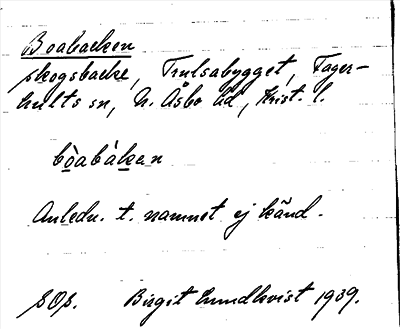 Boabacken
skogsbacke, Trulsabygget, Fager-
hults sn, N. Åsbo hd, Krist. l.
bòabàken
Anledn. t. namnet ej känd.
Birgit Lundkvist 1939.